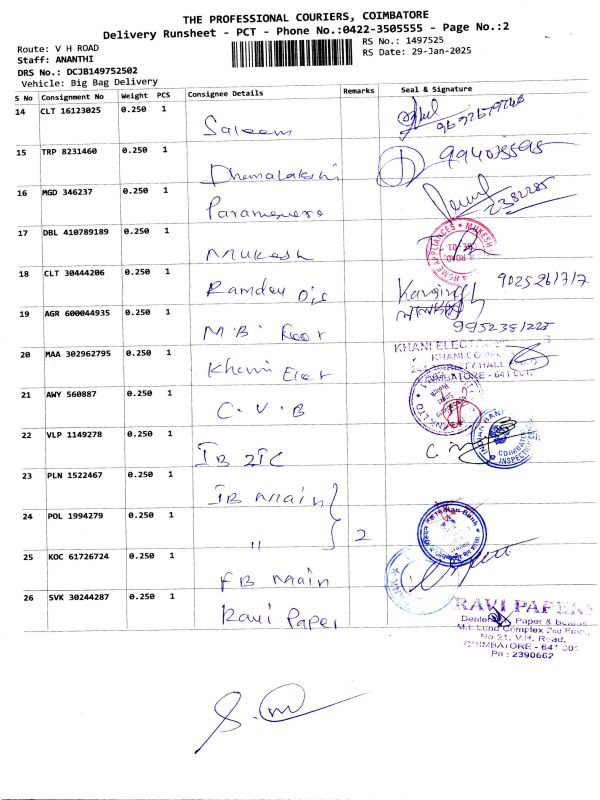 THE PROFESSIONAL COURIERS, COIMBATORE
Delivery Runsheet - PCT - Phone No.:0422-3505555 - Page No.:2
Route: V H ROAD
RS No.: 1497525
Staff: ANANTHI
RS Date: 29-Jan-2025
DRS No.: DCJB149752502
Vehicle: Big Bag Delivery
S No Consignment No Weight PCS Consignee Details Remarks Seal & Signature
14 CLT 16123025 0.250 1 Saleem
15 TRP 8231460 0.250 1 Dhanalakshi
16 MGD 346237 0.250 1
2382285
17 DBL 410789189 0.250 1 Mukesh
HOME APPLIANCES MUKESH
18 CLT 30444206 0.250 1 Ramdev
9025261717
19 AGR 600044935 0.250 1 M.B. Floor
9952351225
20 MAA 302962795 0.250 1 Khani Elec
KHANI ELEC
KHANI COMP
COIMBATORE - 641 001
21 AWY 560887 0.250 1 C.V.B
22 VLP 1149278 0.250 1 IB ZIC
23 PLN 1522467 0.250 1 IB Main
24 POL 1994279 0.250 1 " 2
Indian Bank
25 KOC 61726724 0.250 1 FB Main
26 SVK 30244287 0.250 1 Ravi Paper
RAVI PAPER
Paper &
Complex 2nd Floor
No 21, V.H. Road,
COIMBATORE - 641 001
Ph : 2390662